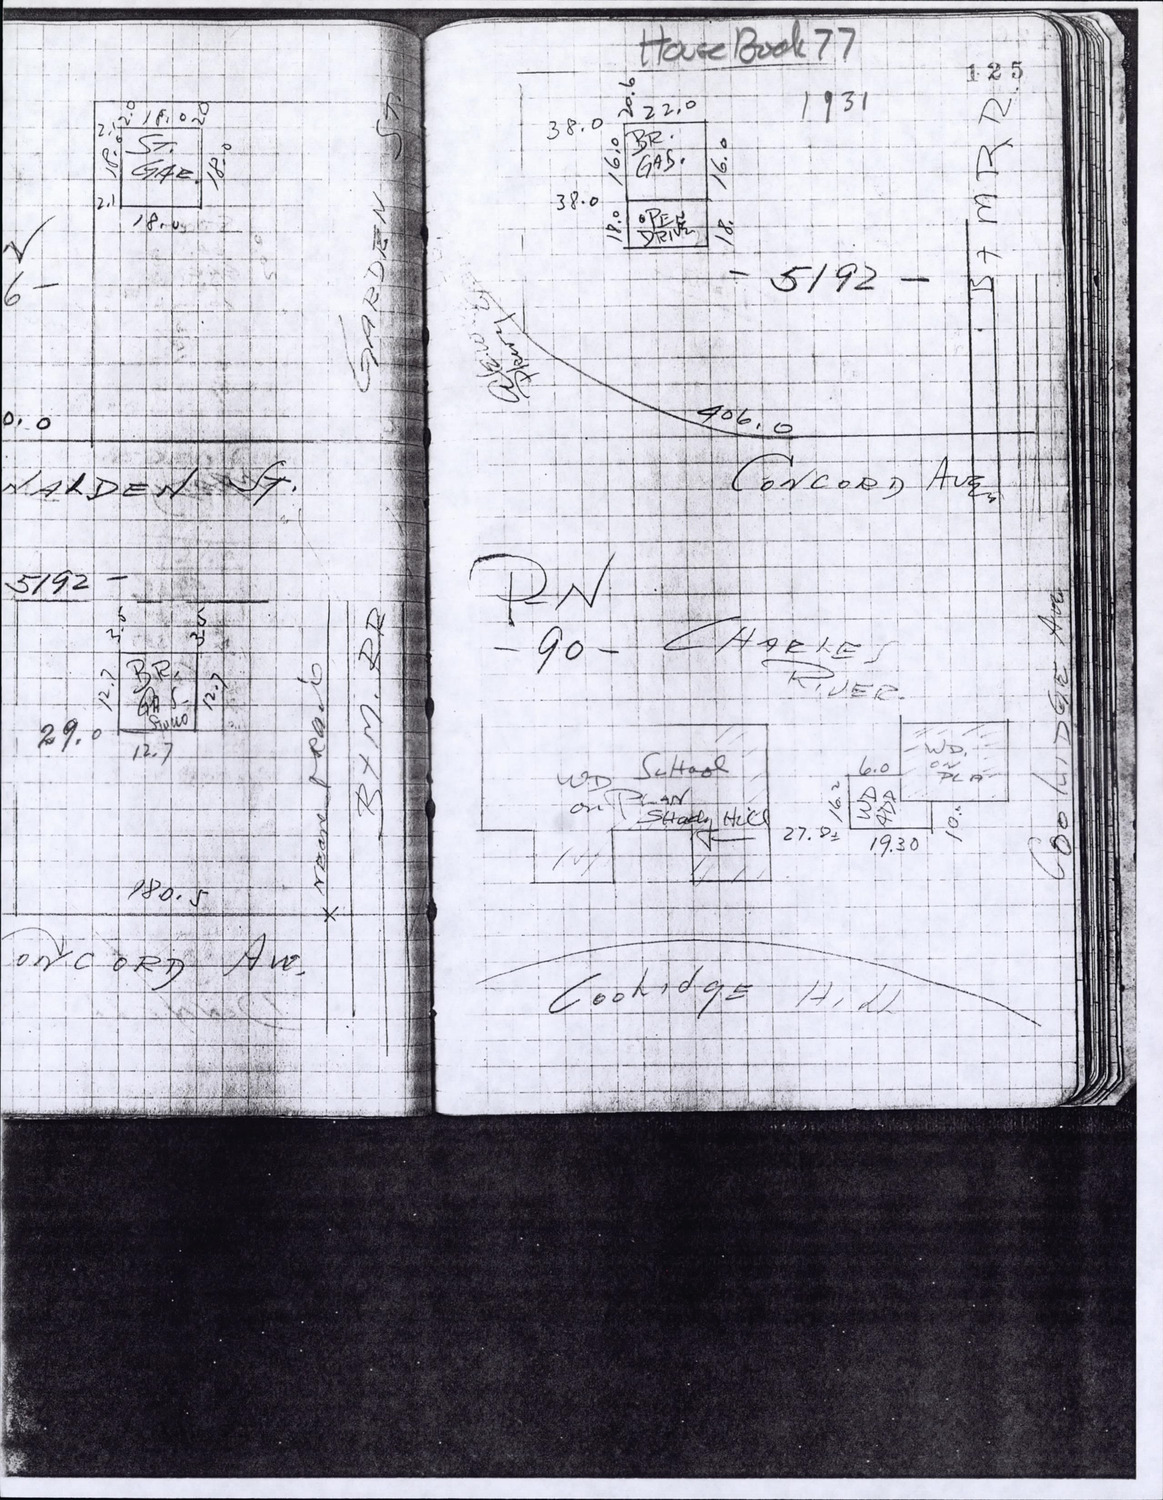 House Book 77
125
1931
2.0 18.0 20
2.1
18.0
ST.
GAR.
18.0
2.1
18.0
GARDEN ST.
6-
0.0
ST.
5192 -
12.7
BR.
GAS.
12.7
29.0
12.7
B + M. RR
180.5
ONCORD AVE.
20.6
22.0
38.0
16.0
BR.
GAS.
16.0
38.0
18.0
OPEN
DRIVE
18.
B + M R R.
- 5192 -
406.0
CONCORD AVE.
P-N
- 90 -
CHARLES
RIVER.
COOLIDGE AVE
WD School
ON PLAN
Shady Hill
WD.
ON
PLA
6.0
16.2
WD
ADD
27.8±
19.30
10.
Coolidge Hill